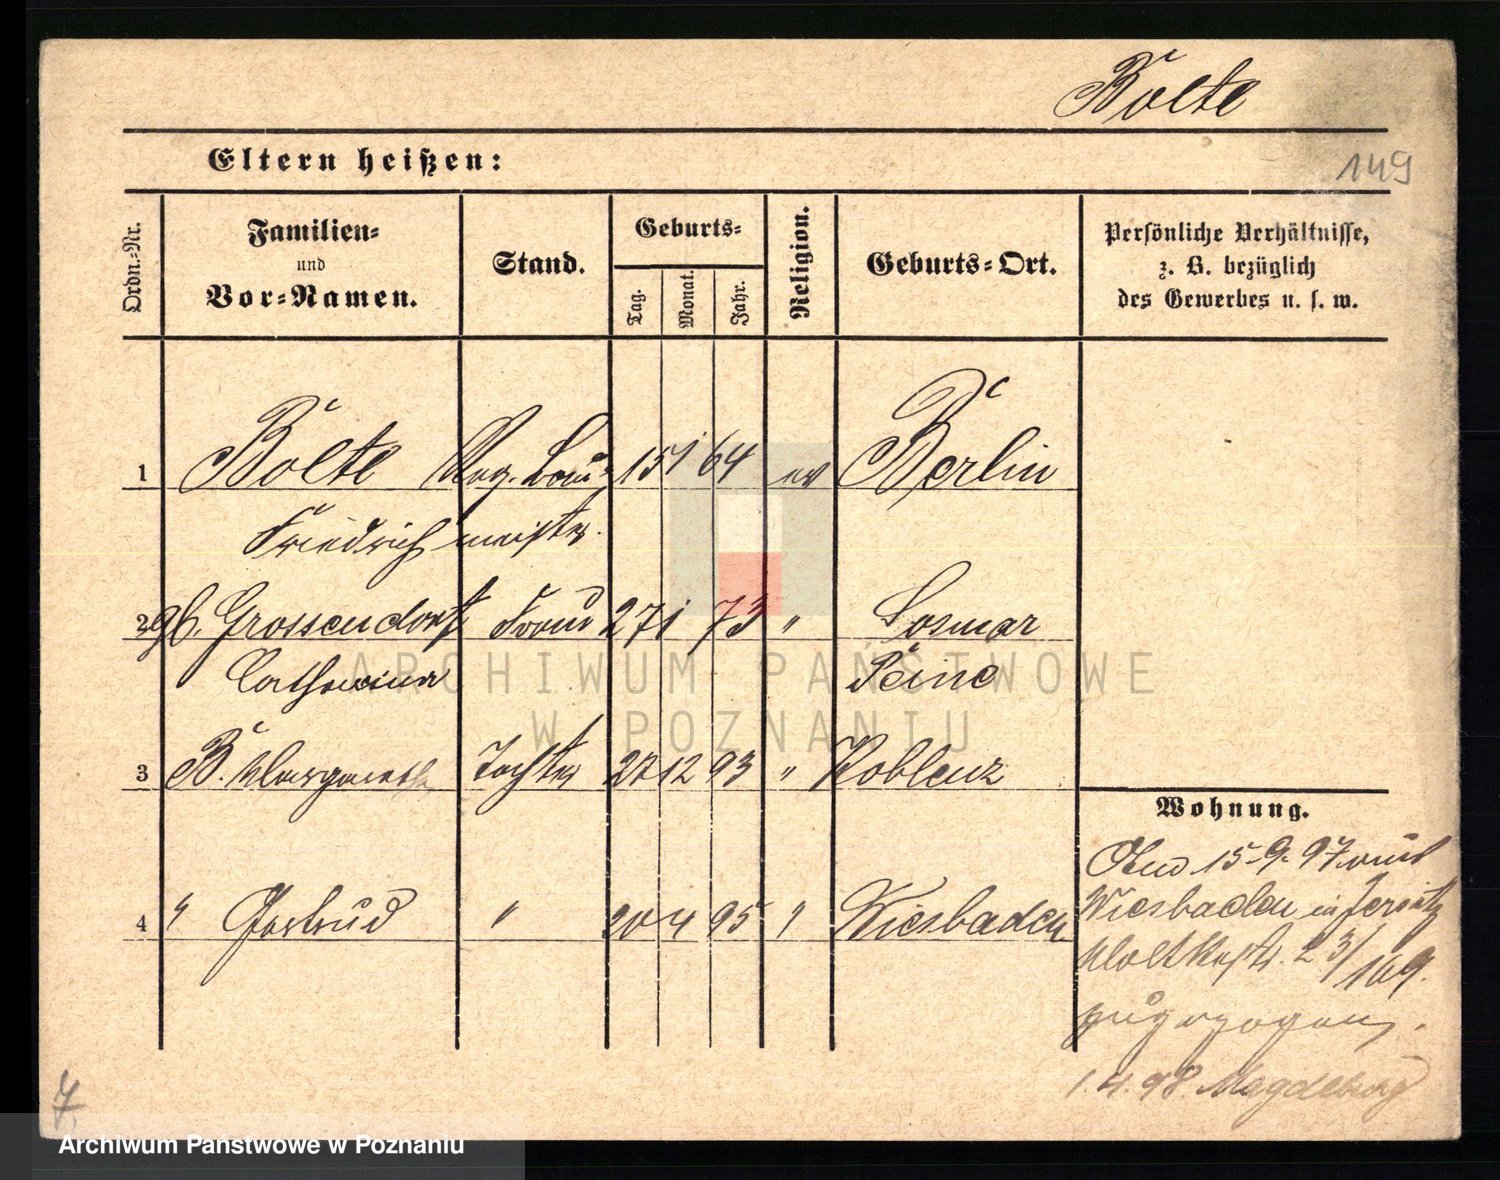 Bölte
149
Eltern heißen:
Ordn.-Nr.
Familien- und Vor-Namen.
Stand.
Geburts-
Tag. Monat. Jahr.
Religion.
Geburts-Ort.
Persönliche Verhältnisse, z. B. bezüglich des Gewerbes u. s. w.
1 Bölte Reg. Bau- 15 1 64 ev Berlin
Friedrich meister.
2 gb. Grossendorf Frau 27 1 73 " Sosmar
Catharina Peine
3 B. Margareth Tochter 27 12 93 " Koblenz
4 " Gertrud " 20 4 95 " Wiesbaden
Wohnung.
15-9. 97 von
Wiesbaden in Jersitz
Moltkestr. 23/169.
zugezogen.
1.4.98. Magdeburg
7
ARCHIWUM PAŃSTWOWE
W POZNANIU
Archiwum Państwowe w Poznaniu